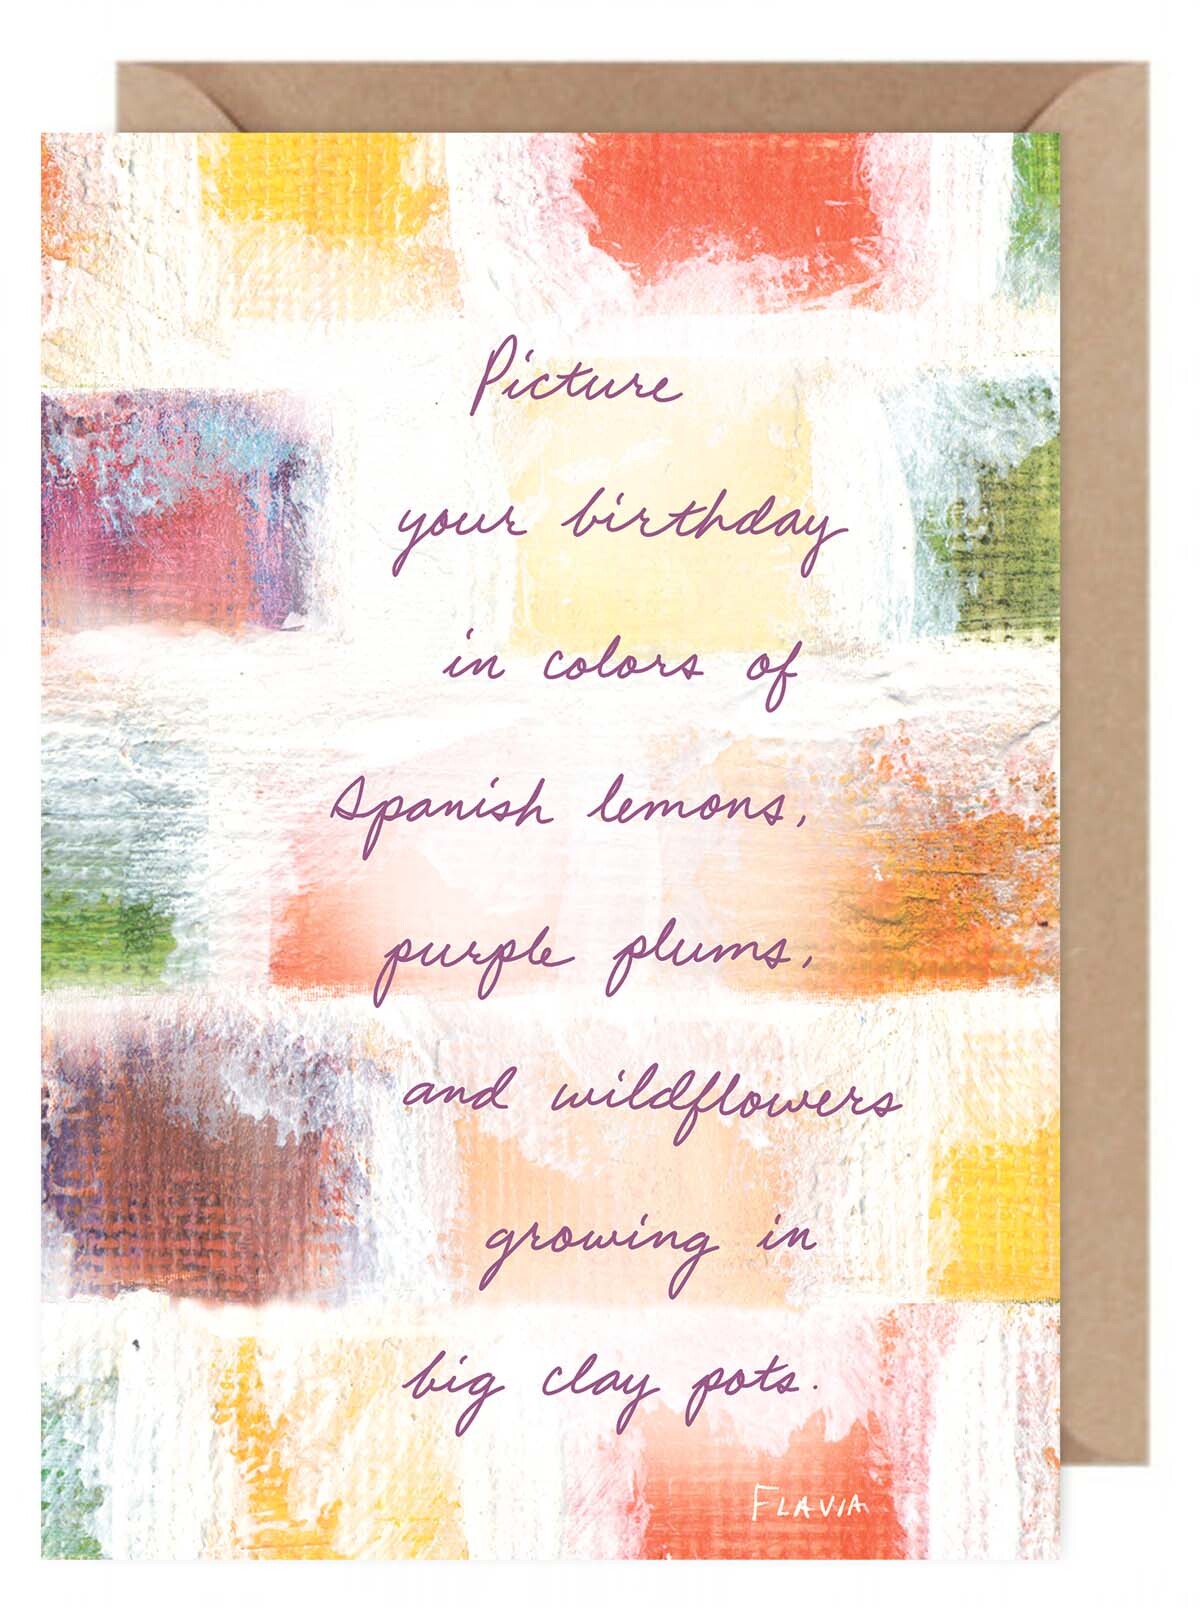 Picture
your birthday
in colors of
Spanish lemons,
purple plums,
and wildflowers
growing in
big clay pots.
FLAVIA